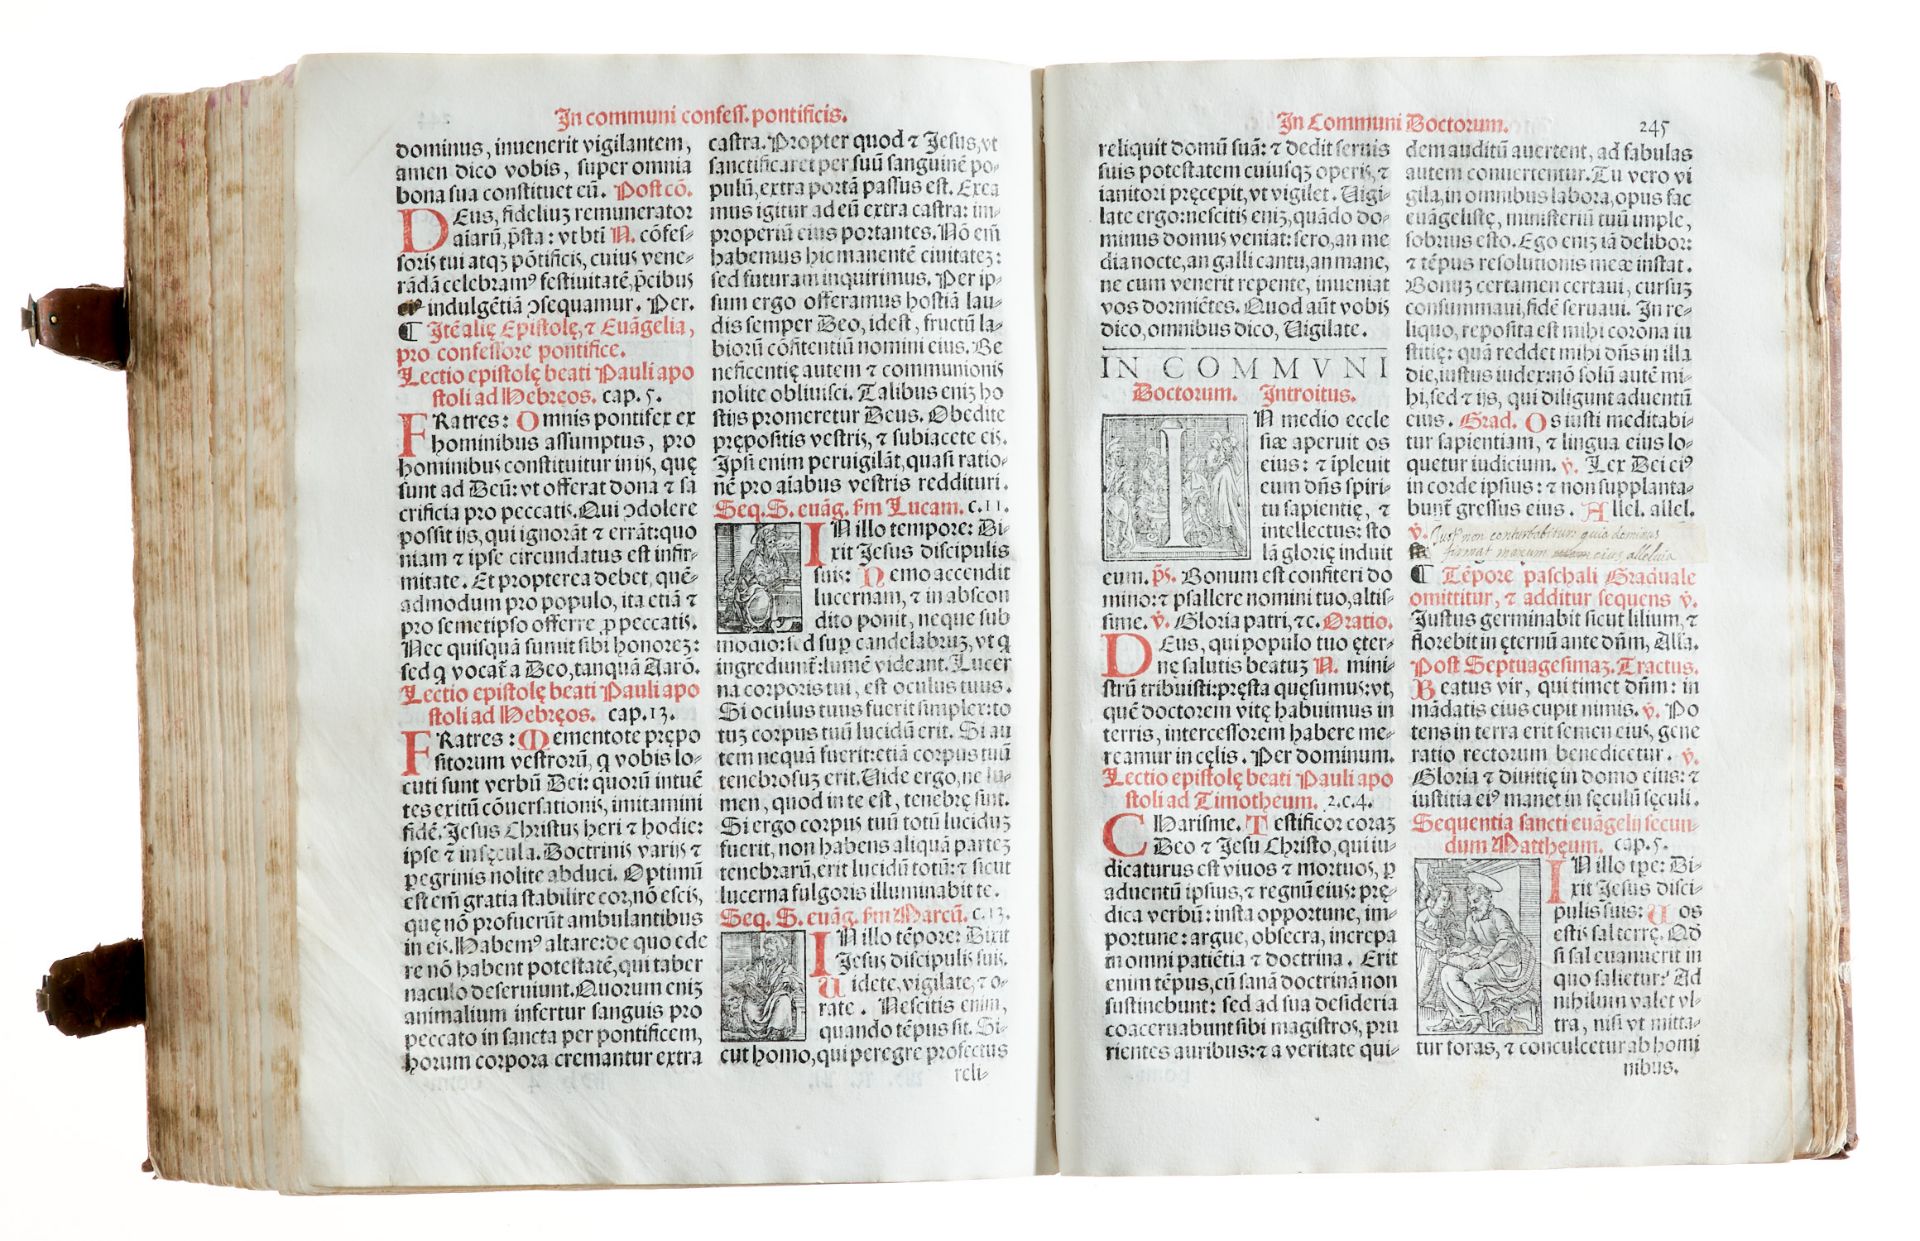 In communi confess. pontificis.
dominus, inuenerit vigilantem,
amen dico vobis, super omnia
bona sua constituet eũ. Post cõ.
DEus, fidelium remunerator
aĩarũ, p̃sta: vt bti N. cõfes-
soris tui atqз põtificis, cuius vene-
rãdã celebramꝰ festiuitatẽ, p̃cibus
eiꝰ indulgẽtiã ↄsequamur. Per.
¶ Itẽ alię Epistolę, ⁊ Euãgelia,
pro confessore pontifice.
Lectio epistolę beati Pauli apo
stoli ad Hebręos. cap. 5.
FRatres: Omnis pontifex ex
hominibus assumptus, pro
hominibus constituitur in ijs, quę
sunt ad Deũ: vt offerat dona ⁊ sa
crificia pro peccatis. Qui ↄdolere
possit ijs, qui ignorãt ⁊ errãt: quo
niam ⁊ ipse circundatus est infir-
mitate. Et propterea debet, quẽ-
admodum pro populo, ita etiã ⁊
pro semetipso offerre ꝓ peccatis.
Nec quisquã sumit sibi honoreз:
sed q̃ vocat̃ a Deo, tanquã Aarõ.
Lectio epistolę beati Pauli apo
stoli ad Hebręos. cap. 13.
FRatres: Mementote prępo
sitorum vestrorũ, q̃ vobis lo-
cuti sunt verbũ Dei: quorũ intuẽ
tes exitũ cõuersationis, imitamini
fidẽ. Jesus Christus heri ⁊ hodie:
ipse ⁊ in sęcula. Doctrinis varijs ⁊
ꝑegrinis nolite abduci. Optimũ
est em̃ gratia stabilire cor, nõ escis,
quę nõ profuerũt ambulantibus
in eis. Habemꝰ altare: de quo ede
re nõ habent potestatẽ, qui taber
naculo deseruiunt. Quorum eniз
animalium infertur sanguis pro
peccato in sancta per pontificem,
horum corpora cremantur extra
castra. Propter quod ⁊ Jesus, vt
sanctificaret per suũ sanguinẽ po-
pulũ, extra portã passus est. Exea
mus igitur ad eũ extra castra: im-
properiũ eius portantes. Nõ em̃
habemus hic manentẽ ciuitateз:
sed futuram inquirimus. Per ip-
sum ergo offeramus hostiã lau-
dis semper Deo, id est, fructũ la-
biorũ cõfitentiũ nomini eius. Be
neficentię autem ⁊ communionis
nolite obliuisci. Talibus eniз ho
stijs promeretur Deus. Obedite
prępositis vestris, ⁊ subiacete eis.
Ipsi enim peruigilãt, quasi ratio-
nẽ pro aĩabus vestris reddituri.
Seq. S. euãg. s̃m Lucam. c. 11.
IN illo tempore: Di-
xit Jesus discipulis
suis: Nemo accendit
lucernam, ⁊ in abscon
dito ponit, neque sub
modio: sed sup̱ candelabruз, vt q̃
ingrediunt̃: lumẽ videant. Lucer
na corporis tui, est oculus tuus.
Si oculus tuus fuerit simplex: to
tuз corpus tuũ lucidũ erit. Si au
tem nequã fuerit: etiã corpus tuũ
tenebrosuз erit. Uide ergo, ne lu-
men, quod in te est, tenebrę sint.
Si ergo corpus tuũ totũ luciduз
fuerit, non habens aliquã parteз
tenebrarũ, erit lucidũ totũ: ⁊ sicut
lucerna fulgoris illuminabit te.
Seq. S. euãg. s̃m Marcũ. c. 13.
IN illo tẽpore: Dixit
Jesus discipulis suis.
Uidete, vigilate, ⁊ o-
rate. Nescitis enim,
quando tẽpus sit. Si-
cut homo, qui peregre profectus
reli-
In Communi Doctorum. 245
reliquit domũ suã: ⁊ dedit seruis
suis potestatem cuiusq̃ operis, ⁊
ianitori pręcepit, vt vigilet. Uigi-
late ergo: nescitis eniз, quãdo do-
minus domus veniat: sero, an me
dia nocte, an galli cantu, an mane,
ne cum venerit repente, inueniat
vos dormiẽtes. Quod aũt vobis
dico, omnibus dico, Uigilate.
IN COMMVNI
Doctorum. Introitus.
IN medio eccle
siæ aperuit os
eius: ⁊ ĩpleuit
eum dñs spiri-
tu sapientię, ⁊
intellectus: sto
lã glorię induit
eum. p̃s. Bonum est confiteri do
mino: ⁊ psallere nomini tuo, altis-
sime. ℣. Gloria patri, ⁊c. Oratio.
DEus, qui populo tuo ęter-
nę salutis beatuз N. mini-
strũ tribuisti: pręsta quęsumus: vt,
quẽ doctorem vitę habuimus in
terris, intercessorem habere me-
reamur in cęlis. Per dominum.
Lectio epistolę beati Pauli apo
stoli ad Timotheum. 2. c. 4.
CHarisme. Testificor coraз
Deo ⁊ Jesu Christo, qui iu-
dicaturus est viuos ⁊ mortuos, ꝑ
aduentũ ipsius, ⁊ regnũ eius: prę-
dica verbũ: insta opportune, im-
portune: argue, obsecra, increpa
in omni patiẽtia ⁊ doctrina. Erit
enim tẽpus, cũ sanã doctrinã non
sustinebunt: sed ad sua desideria
coaceruabunt sibi magistros, pru
rientes auribus: ⁊ a veritate qui-
dem auditũ auertent, ad fabulas
autem conuertentur. Tu vero vi
gila, in omnibus labora, opus fac
euãgelistę, ministeriũ tuũ imple,
sobrius esto. Ego eniз iã delibor:
⁊ tẽpus resolutionis meæ instat.
Bonuз certamen certaui, cursuз
consummaui, fidẽ seruaui. In re-
liquo, reposita est mihi corona iu
stitię: quã reddet mihi dñs in illa
die, iustus iudex: nõ solũ autẽ mi-
hi, sed ⁊ ijs, qui diligunt aduentũ
eius. Grad. Os iusti meditabi-
tur sapientiam, ⁊ lingua eius lo-
quetur iudicium. ℣. Lex Dei eiꝰ
in corde ipsius: ⁊ non supplanta-
bunt̃ gressus eius. Allel. allel.
℣. Justꝰ non conturbabitur quia dominus
firmat manum eius alleluia
¶ Tẽpore paschali Graduale
omittitur, ⁊ additur sequens ℣.
Justus germinabit sicut lilium, ⁊
florebit in ęternũ ante dnm̃, Alla.
Post Septuagesimaз. Tractus.
Beatus vir, qui timet dñm: in
mãdatis eius cupit nimis. ℣. Po
tens in terra erit semen eius, gene
ratio rectorum benedicetur. ℣.
Gloria ⁊ diuitię in domo eius: ⁊
iustitia eiꝰ manet in sęculũ sęculi.
Sequentia sancti euãgelij secun-
dum Matthęum. cap. 5.
IN illo tp̃e: Di-
xit Jesus disci-
pulis suis: Uos
estis sal terrę. Qđ
si sal euanuerit in
quo salietur? Ad
nihilum valet vl-
tra, nisi vt mitta-
tur foras, ⁊ conculcetur ab homi
nibus.